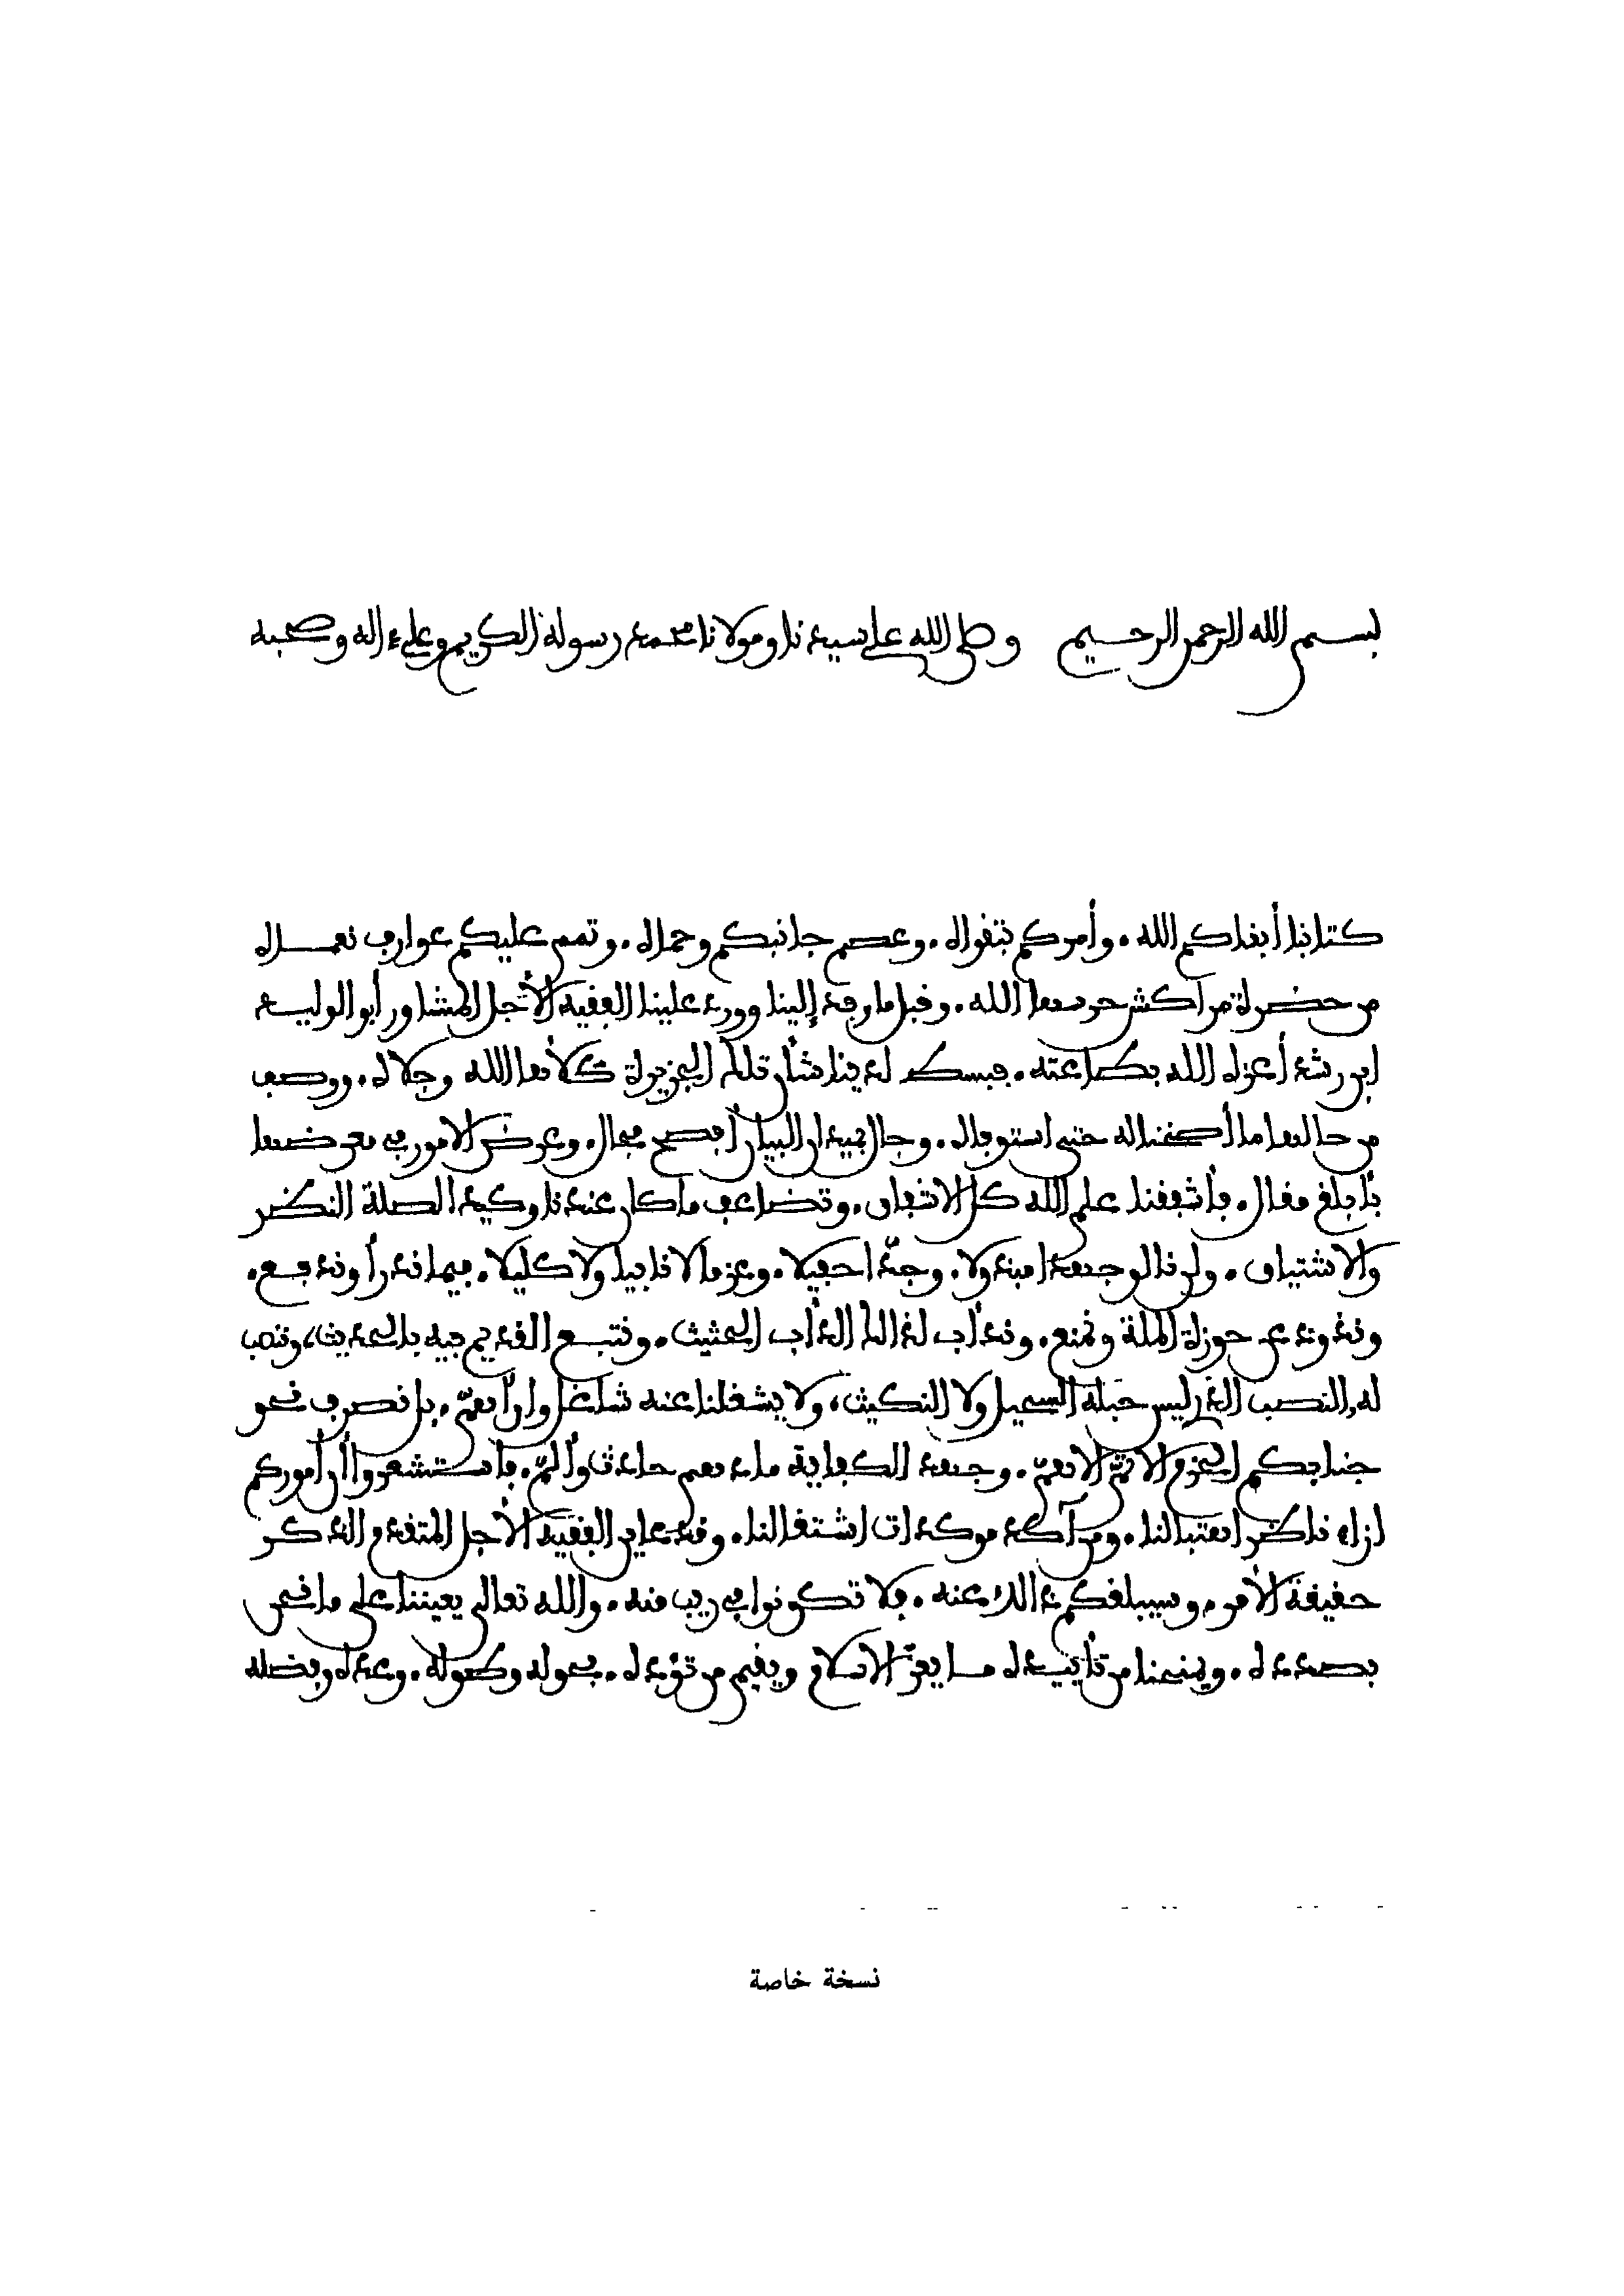 بسم الله الرحمن الرحيم وصلى الله على سيدنا ومولانا محمد رسوله الكريم وعلى ءاله وصحبه
كتابنا أبقاكم الله . وأمركم بتقواه . وعصم جانبكم وحماه . وتمم عليكم عوارف نعماه
من حضرة مراكش حرسها الله . وقبل ما وفد إلينا وورد علينا الفقيه الأجل المشاور أبو الوليد
ابن رشد أعزه الله بطاعته . فبسط لدينا شأن تلك الجزيرة كلأها الله وجلاه . ووصف
من حالها ما أصغنا له حتى استوفاه . وجال بميدان البيان أفصح مجال . وعرض الأمور في معرضها
بأبلغ مقال . فأشفقنا علم الله كل الاشفاق . وتضاعف ما كان عندنا وكيد الصلة النظر
والاشتياق . ولن نالو جهدا مبذولا . وجدّا حفيلا . وعزما لا نابيا ولا كليلا . فيما ندرأ وندفع .
ونذود عن حوزة الملة ونمنع . وندأب لذلك الدأب الحثيث . ونتبع القديم فيه بالحديث ، وننصب
له النصب الذي ليس حبله السحيل ولا النكيث ، ولا يشغلنا عنه شاغل وان أهمّ . بل نصرف نحو
جنابكم الحزم الاتمّ الاهمّ . وجهد الكفاية ما دهم حادث وألمّ . فاستشعروا أن أموركم
ازاء ناظر اهتبالنا . ومن آكد موكدات اشتغالنا . وقد عاين الفقيه الأجل المتقدم الذكر
حقيقة الأمر . وسيبلغكم ذلك عنه . فلا تكونوا في ريب منه . والله تعالى يعيننا على ما نحن
بصدده . ويمنحنا من تأييده ما يعزّ الاسلام ويقيم من تؤده . بحوله وطوله . وعدله وبفضله
نسخة خاصة